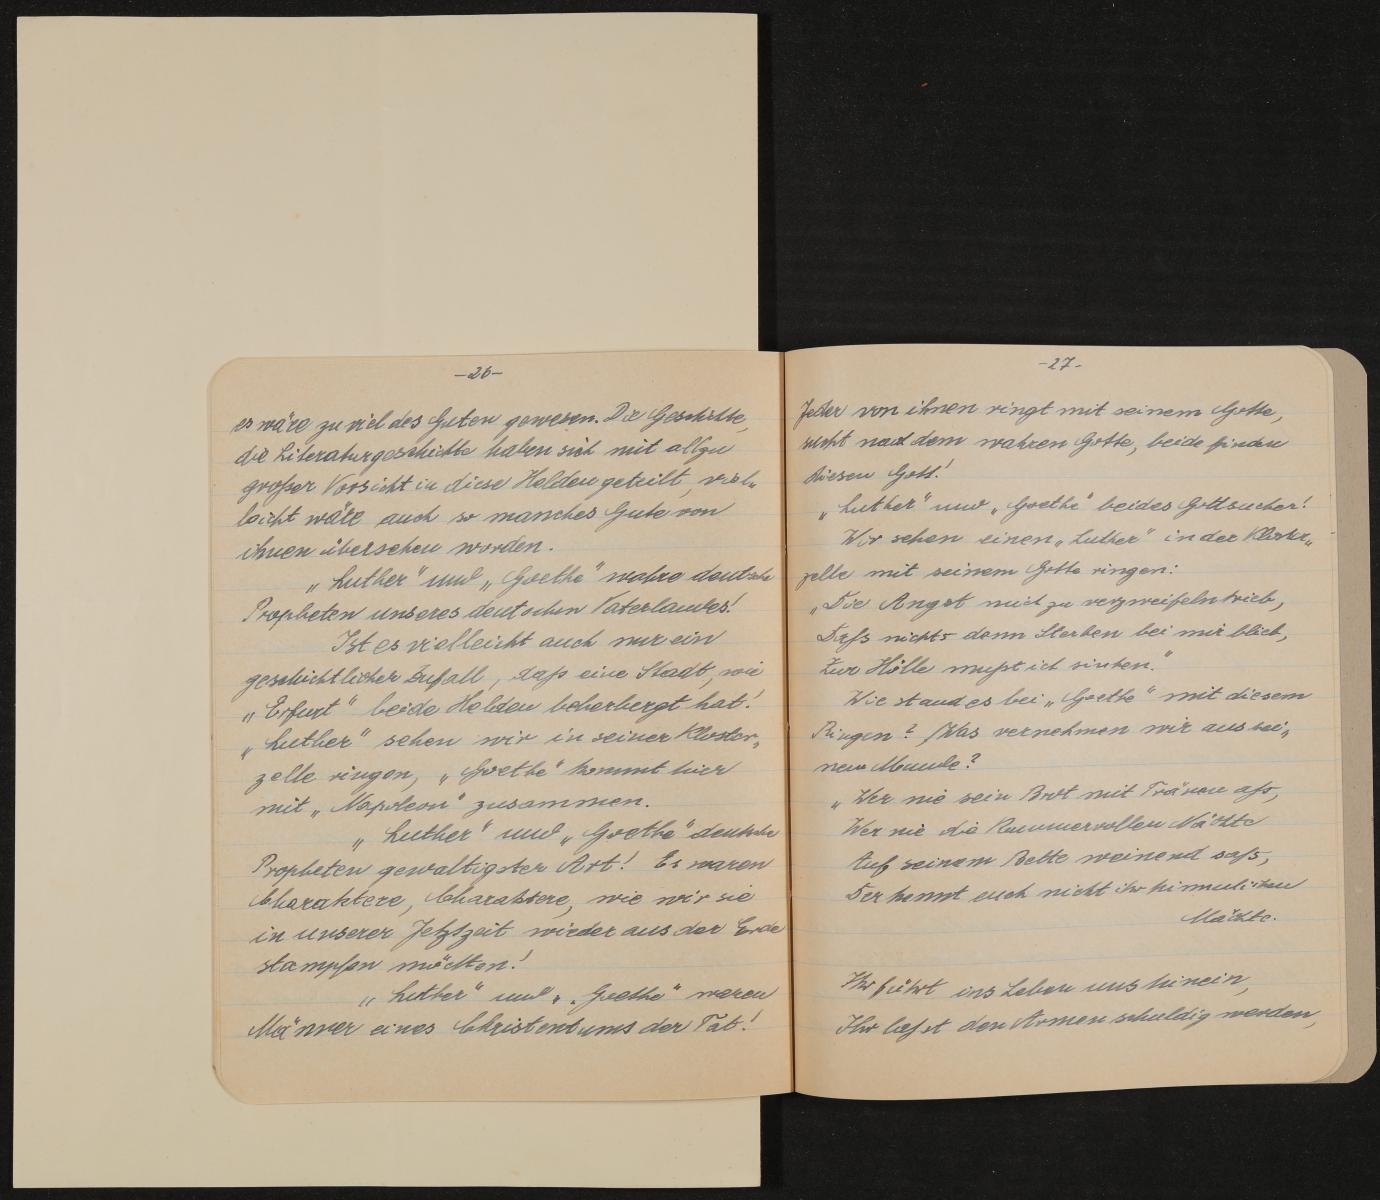 -26-
es wäre zu viel des Guten gewesen. Die Geschichte,
die Literaturgeschichte haben sich mit allzu
großer Vorsicht in diese Helden geteilt, viel„
leicht wäre auch so manches Gute von
ihnen übersehen worden.
„Luther" und „Goethe" wahre deutsche
Propheten unseres deutschen Vaterlandes!
Ist es vielleicht auch nur ein
geschichtlicher Zufall, daß eine Stadt, wie
„Erfurt" beide Helden beherbergt hat!
„Luther" sehen wir in seiner Kloster„
zelle ringen, „Goethe" kommt hier
mit „Napoleon" zusammen.
„Luther" und „Goethe" deutsche
Propheten gewaltigster Art! Es waren
Charaktere, Charaktere, wie wir sie
in unserer Jetztzeit wieder aus der Erde
stampfen möchten!
„Luther" und „Goethe" waren
Männer eines Christentums der Tat!
-27-
Jeder von ihnen ringt mit seinem Gotte,
sucht nach dem wahren Gotte, beide finden
diesen Gott!
„Luther" und „Goethe" beides Gottsucher!
Wir sehen einen „Luther" in der Kloster„
zelle mit seinem Gotte ringen:
„Die Angst mich zu verzweifeln trieb,
Daß nichts denn Sterben bei mir blieb,
Zur Hölle mußt ich sinken."
Wie stand es bei „Goethe" mit diesem
Ringen? Was vernehmen wir aus sei„
nem Munde?
„Wer nie sein Brot mit Tränen aß,
Wer nie die kummervollen Nächte
Auf seinem Bette weinend saß,
Der kennt euch nicht ihr himmlischen
Mächte.
Ihr führt ins Leben uns hinein,
Ihr laßt den Armen schuldig werden,